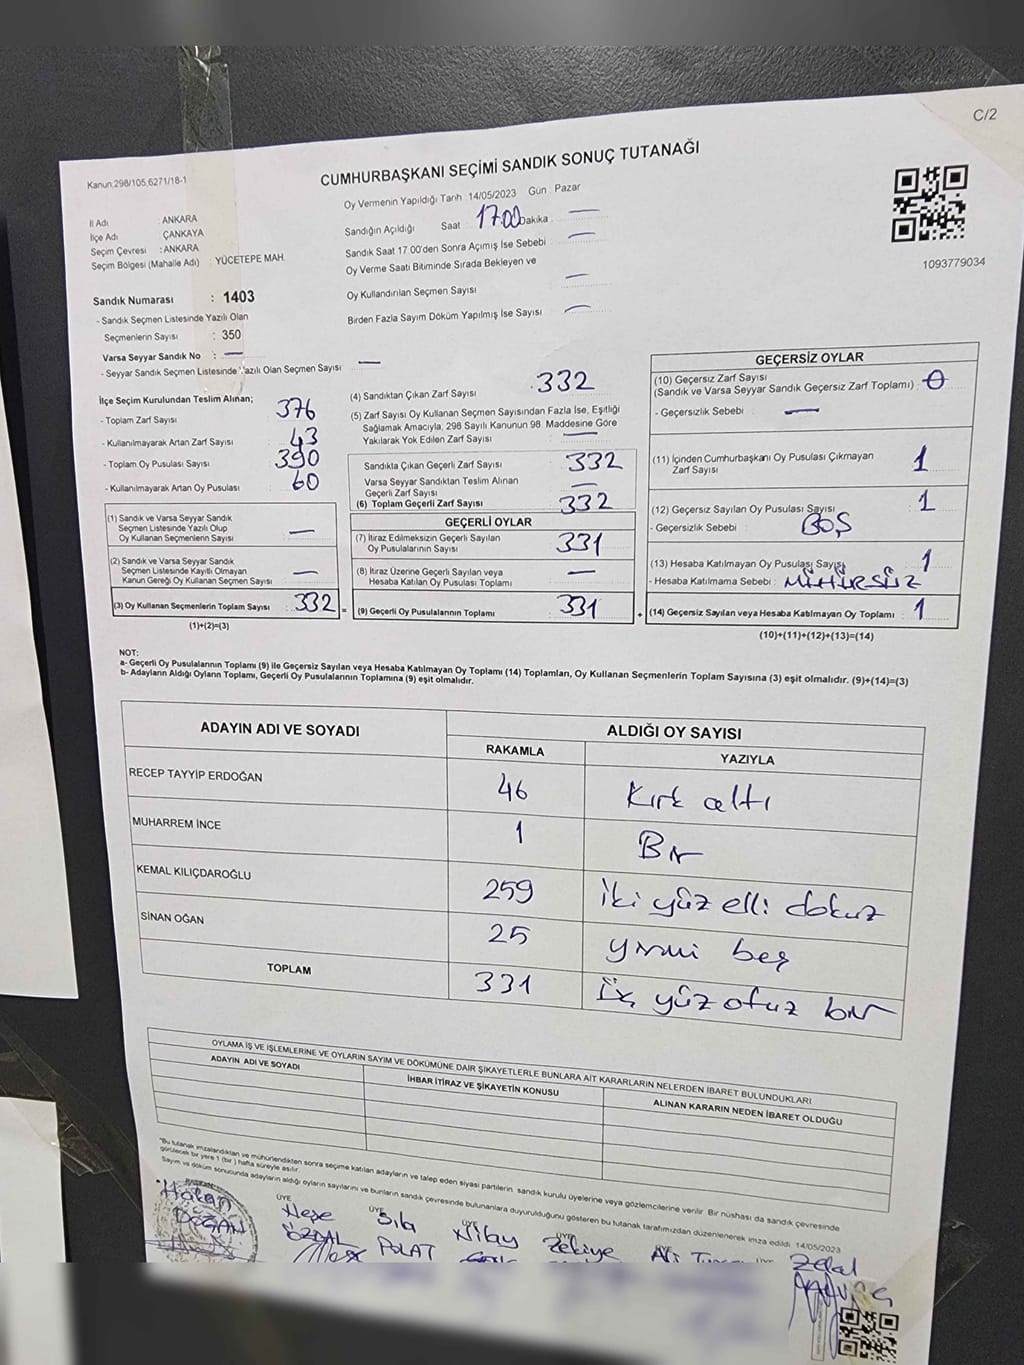 C/2
Kanun:298/105,6271/18-1
CUMHURBAŞKANI SEÇİMİ SANDIK SONUÇ TUTANAĞI
İl Adı : ANKARA
İlçe Adı : ÇANKAYA
Seçim Çevresi : ANKARA
Seçim Bölgesi (Mahalle Adı) : YÜCETEPE MAH.
Sandık Numarası : 1403
- Sandık Seçmen Listesinde Yazılı Olan
Seçmenlerin Sayısı : 350
Varsa Seyyar Sandık No : —
- Seyyar Sandık Seçmen Listesinde Yazılı Olan Seçmen Sayısı —
Oy Vermenin Yapıldığı Tarih :14/05/2023 Gün : Pazar
Sandığın Açıldığı Saat 17.00 Dakika —
Sandık Saat 17.00'den Sonra Açımış İse Sebebi —
Oy Verme Saati Bitiminde Sırada Bekleyen ve
Oy Kullandırılan Seçmen Sayısı —
Birden Fazla Sayım Döküm Yapılmış İse Sayısı —
1093779034
İlçe Seçim Kurulundan Teslim Alınan;
- Toplam Zarf Sayısı 376
- Kullanılmayarak Artan Zarf Sayısı 43
- Toplam Oy Pusulası Sayısı 390
- Kullanılmayarak Artan Oy Pusulası 60
(1) Sandık ve Varsa Seyyar Sandık
Seçmen Listesinde Yazılı Olup
Oy Kullanan Seçmenlerin Sayısı —
(2) Sandık ve Varsa Seyyar Sandık
Seçmen Listesinde Kayıtlı Olmayan
Kanun Gereği Oy Kullanan Seçmen Sayısı —
(3) Oy Kullanan Seçmenlerin Toplam Sayısı 332 =
(1)+(2)=(3)
(4) Sandıktan Çıkan Zarf Sayısı 332
(5) Zarf Sayısı Oy Kullanan Seçmen Sayısından Fazla İse, Eşitliği
Sağlamak Amacıyla, 298 Sayılı Kanunun 98. Maddesine Göre
Yakılarak Yok Edilen Zarf Sayısı —
Sandıkta Çıkan Geçerli Zarf Sayısı 332
Varsa Seyyar Sandıktan Teslim Alınan
Geçerli Zarf Sayısı —
(6) Toplam Geçerli Zarf Sayısı 332
GEÇERLİ OYLAR
(7) İtiraz Edilmeksizin Geçerli Sayılan
Oy Pusulalarının Sayısı 331
(8) İtiraz Üzerine Geçerli Sayılan veya
Hesaba Katılan Oy Pusulası Toplamı —
(9) Geçerli Oy Pusulalarının Toplamı 331 +
GEÇERSİZ OYLAR
(10) Geçersiz Zarf Sayısı
(Sandık ve Varsa Seyyar Sandık Geçersiz Zarf Toplamı) : 0
- Geçersizlik Sebebi : —
(11) İçinden Cumhurbaşkanı Oy Pusulası Çıkmayan
Zarf Sayısı 1
(12) Geçersiz Sayılan Oy Pusulası Sayısı 1
- Geçersizlik Sebebi : BOŞ
(13) Hesaba Katılmayan Oy Pusulası Sayısı 1
- Hesaba Katılmama Sebebi : MÜHÜRSÜZ
(14) Geçersiz Sayılan veya Hesaba Katılmayan Oy Toplamı : 1
(10)+(11)+(12)+(13)=(14)
NOT:
a- Geçerli Oy Pusulalarının Toplamı (9) ile Geçersiz Sayılan veya Hesaba Katılmayan Oy Toplamı (14) Toplamları, Oy Kullanan Seçmenlerin Toplam Sayısına (3) eşit olmalıdır. (9)+(14)=(3)
b- Adayların Aldığı Oyların Toplamı, Geçerli Oy Pusulalarının Toplamına (9) eşit olmalıdır.
ADAYIN ADI VE SOYADI ALDIĞI OY SAYISI
RAKAMLA YAZIYLA
RECEP TAYYİP ERDOĞAN 46 Kırk altı
MUHARREM İNCE 1 Bir
KEMAL KILIÇDAROĞLU 259 iki yüz elli dokuz
SİNAN OĞAN 25 yirmi beş
TOPLAM 331 Üç yüz otuz bir
OYLAMA İŞ VE İŞLEMLERİNE VE OYLARIN SAYIM VE DÖKÜMÜNE DAİR ŞİKAYETLERLE BUNLARA AİT KARARLARIN NELERDEN İBARET BULUNDUKLARI
ADAYIN ADI VE SOYADI İHBAR İTİRAZ VE ŞİKAYETİN KONUSU ALINAN KARARIN NEDEN İBARET OLDUĞU
"Bu tutanak imzalandıktan ve mühürlendikten sonra seçime katılan adayların ve talep eden siyasi partilerin, sandık kurulu üyelerine veya gözlemcilerine verilir. Bir nüshası da sandık çevresinde
görülecek bir yere 1 (bir) hafta süreyle asılır.
Sayım ve döküm sonucunda adayların aldığı oyların sayılarını ve bunların sandık çevresinde bulunanlara duyurulduğunu gösteren bu tutanak tarafımızdan düzenlenerek imza edildi. 14/05/2023
ÜYE ÜYE ÜYE ÜYE
Hakan Neşe Sıla Nilay Zekiye Ali Zelal
DOĞAN ÖZDAL POLAT